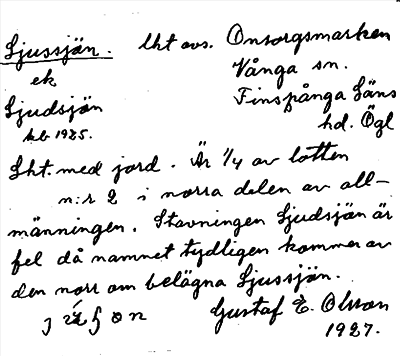 Ljussjön. Lht avs. Onsorgsmarken
ek Vånga sn.
Ljudsjön Finspånga Läns
kb 1925. hd. Ögl
Lht. med jord. Är 1/4 av lotten
n:r 2 i norra delen av all-
männingen. Stavningen Ljudsjön är
fel då namnet tydligen kommer av
den norr om belägna Ljussjön.
Gustaf E. Olsson
1927.